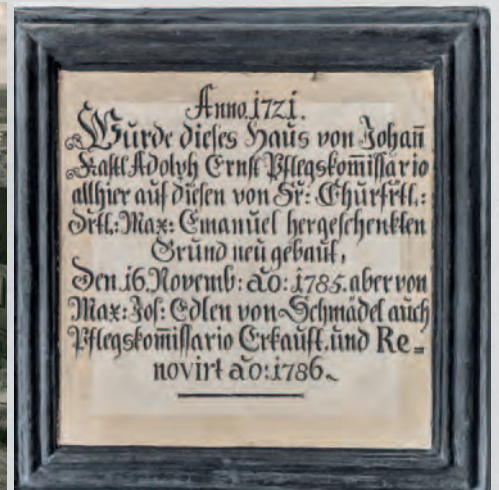 Anno. 1721.
Wurde dieses Haus von Johañ
Kastl Adolph Ernst Pflegskom̃issario
allhier auf diesen von Sr: Chürfrtl.:
Drtl.: Max: Emanuel hergeschenkten
Grund neü gebaut,
Den 16. Novemb: ao: 1785. aber von
Max: Jos: Edlen von Schmädel auch
Pflegskom̃issario Erkauft. und Re=
novirt ao: 1786.